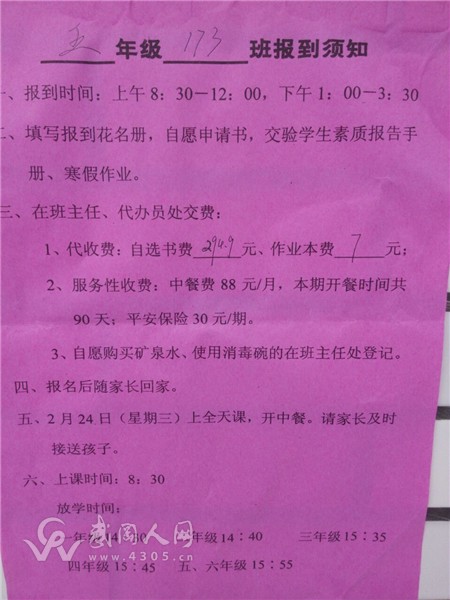 五 年级 173 班报到须知
一、报到时间：上午 8：30－12：00，下午 1：00－3：30
二、填写报到花名册，自愿申请书，交验学生素质报告手
册、寒假作业。
三、在班主任、代办员处交费：
1、代收费：自选书费 294.9 元、作业本费 7 元；
2、服务性收费：中餐费 88 元/月，本期开餐时间共
90 天；平安保险 30 元/期。
3、自愿购买矿泉水、使用消毒碗的在班主任处登记。
四、报名后随家长回家。
五、2 月 24 日（星期三）上全天课，开中餐。请家长及时
接送孩子。
六、上课时间：8：30
放学时间：
一年级 14：30 年级 14：40 三年级 15：35
四年级 15：45 五、六年级 15：55
武冈人网
www.4305.cn